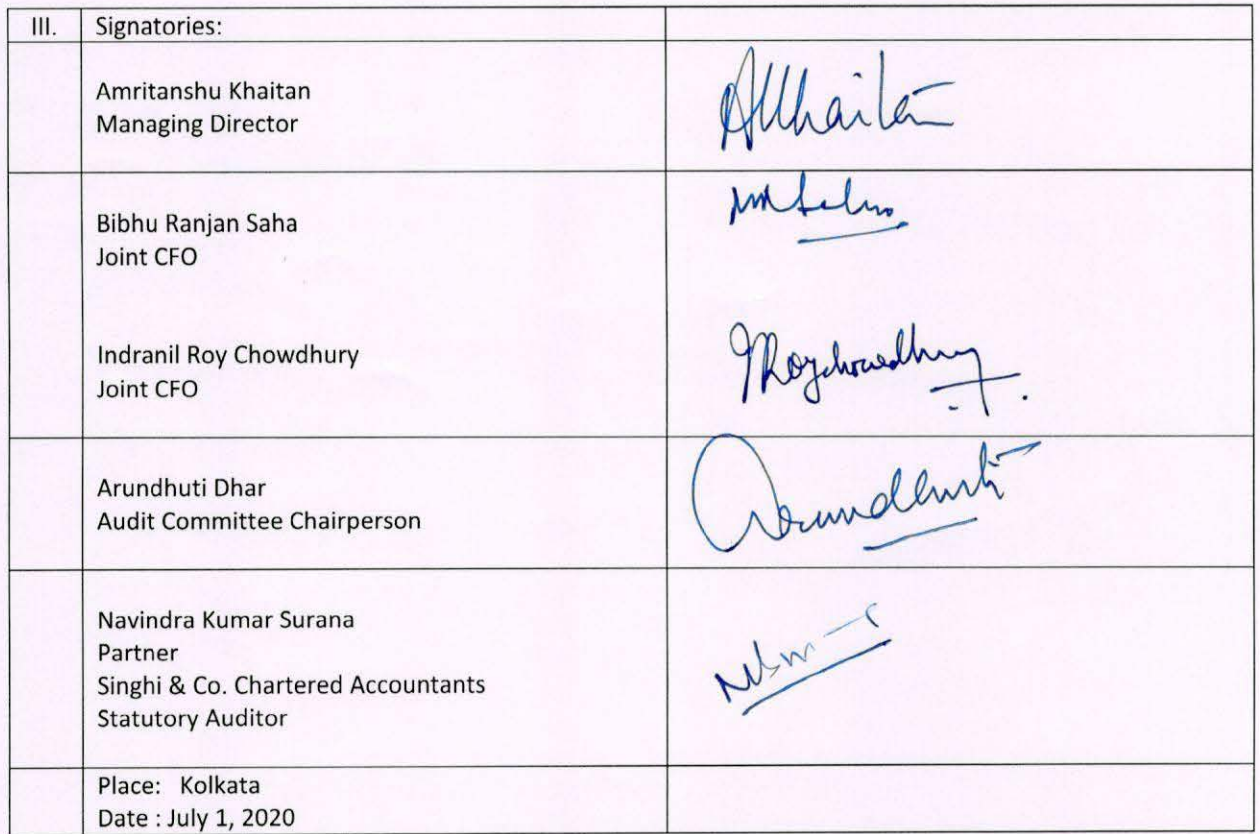 III. Signatories:
Amritanshu Khaitan
Managing Director
AKhaitan
Bibhu Ranjan Saha
Joint CFO
Indranil Roy Chowdhury
Joint CFO
IRoychowdhury
Arundhuti Dhar
Audit Committee Chairperson
Arundhuti
Navindra Kumar Surana
Partner
Singhi & Co. Chartered Accountants
Statutory Auditor
Place: Kolkata
Date : July 1, 2020